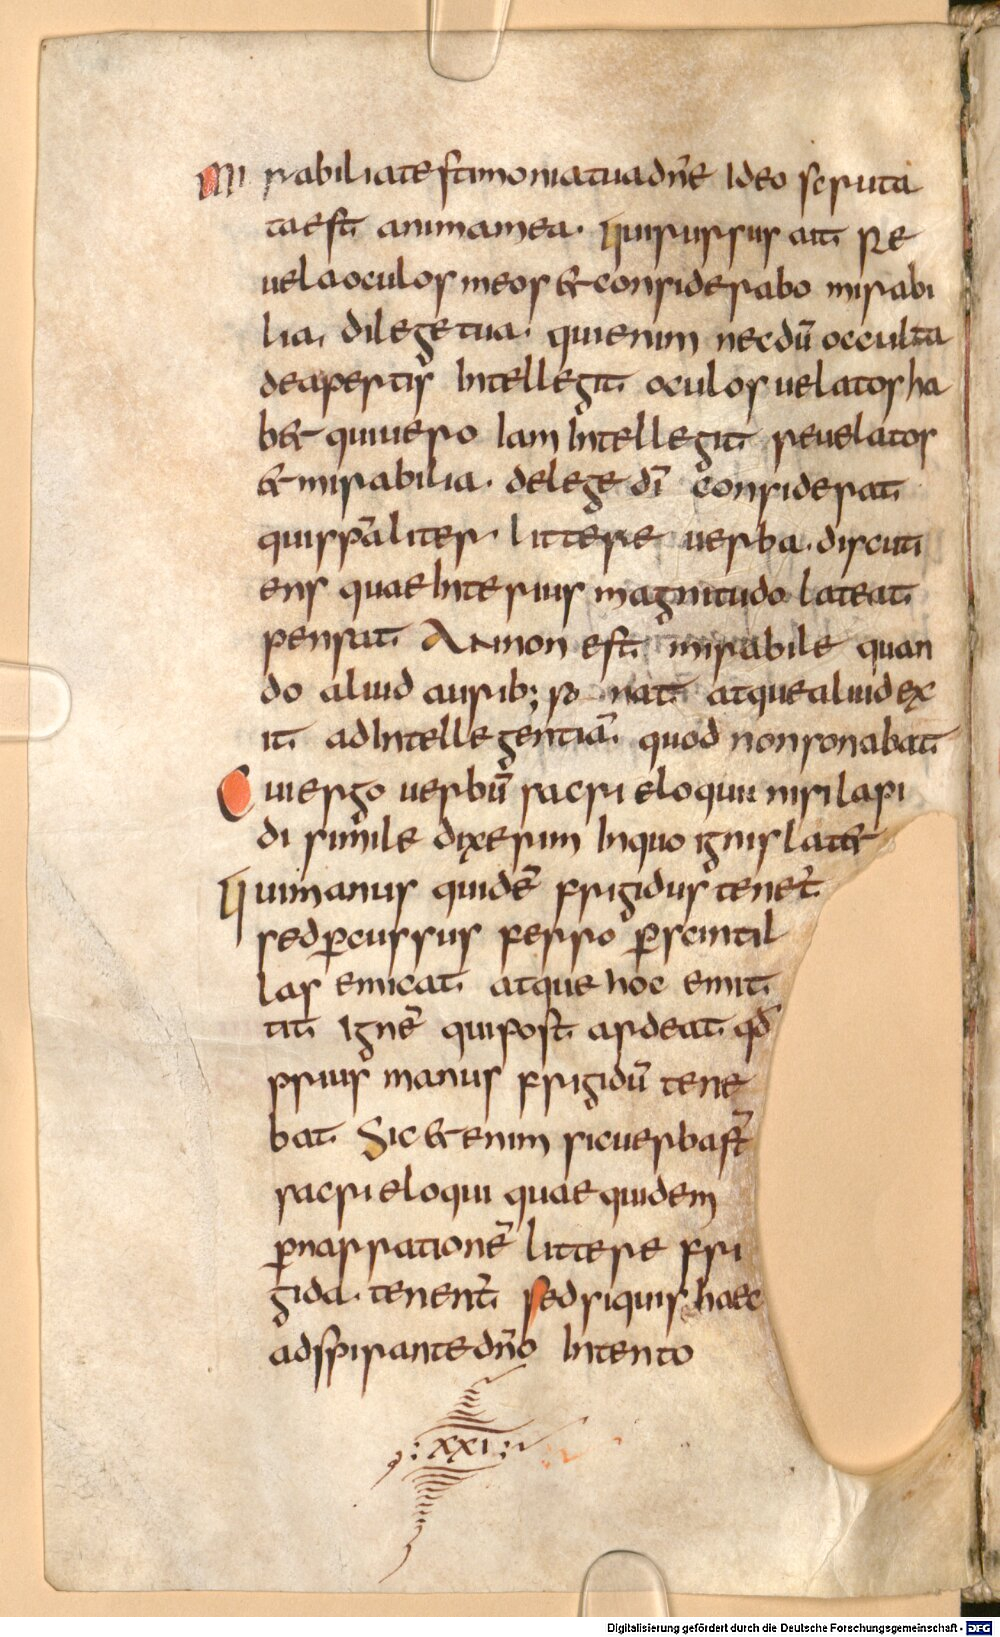 Mirabilia testimonia tua dn̄e Ideo scruta
ta est anima mea. Qui rursus ait Re
uela oculos meos & considerabo mirabi
lia. di lege tua. qui enim necdū occulta
de apertis Intellegit oculos uelatos ha
b& qui uero Iam Intellegit reuelatos
& mirabilia. de lege dī considerat
quisp̄aliter. littere uerba. discuti
ens quae Interius magnitudo lateat
pensat An non est mirabile quan
do aliud aurib; so nat atque aliud ex
it ad Intellegentiā quod non sonabat
Cui ergo uerbū sacri eloquii nisi lapi
di simile dixerim In quo ignis lat&
Qui manus quidē frigidus tenet̄
sed ꝑcussus ferro ꝑ scintil
las emicat atque hoc emit
tit Ignē qui post ardeat qd̄
prius manus frigidū tene
bat Sic & enim sic uerba st̄
sacri eloqui quae quidem
ꝑ narrationē littere fri
gida. tenent̄ sed si quis haec
adspirante dn̄o Intento
: xxi :
Digitalisierung gefördert durch die Deutsche Forschungsgemeinschaft - DFG